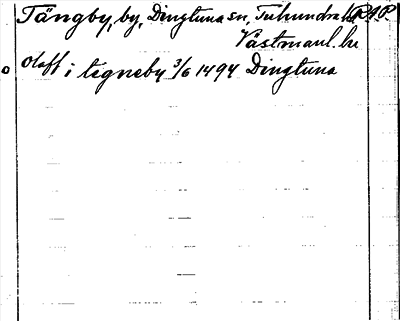 Tängby, by, Dingtuna sn, Tuhundra hd RAP
Västmanl. län
Olaff i tegneby 3/6 1494 Dingtuna